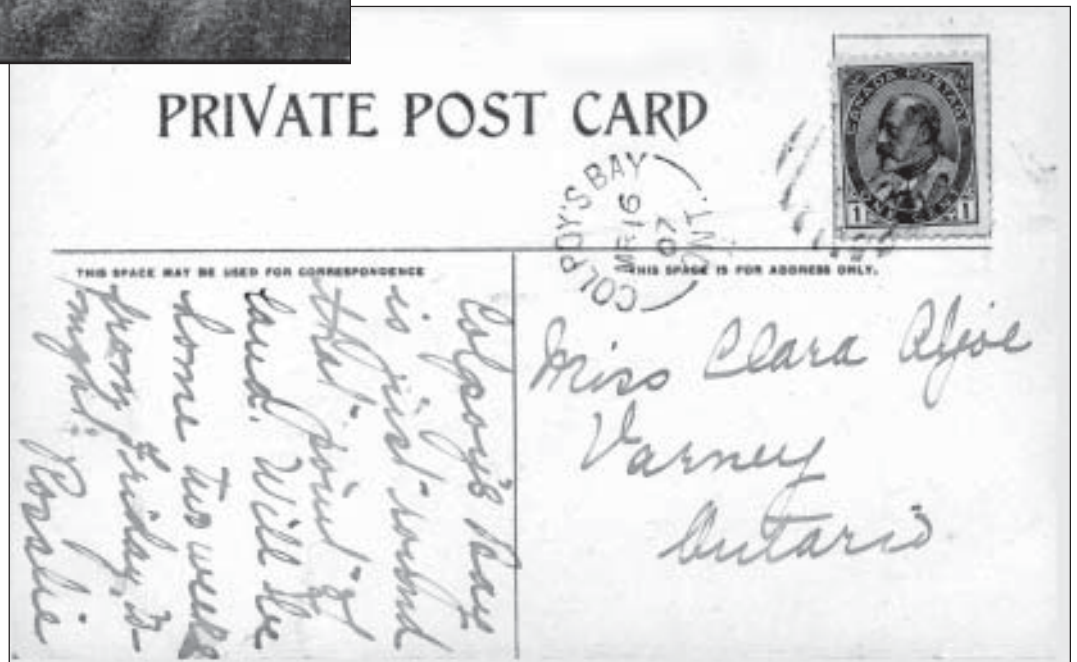 PRIVATE POST CARD
CANADA POSTAGE
1 1
COLPOY'S BAY
MR 16
07
ONT.
THIS SPACE MAY BE USED FOR CORRESPONDENCE
THIS SPACE IS FOR ADDRESS ONLY.
Colpoy's Bay
is just round
that point of
land. Will be
home two weeks
from Friday, to-
night. Rosalie
Miss Clara
Varney
Ontario